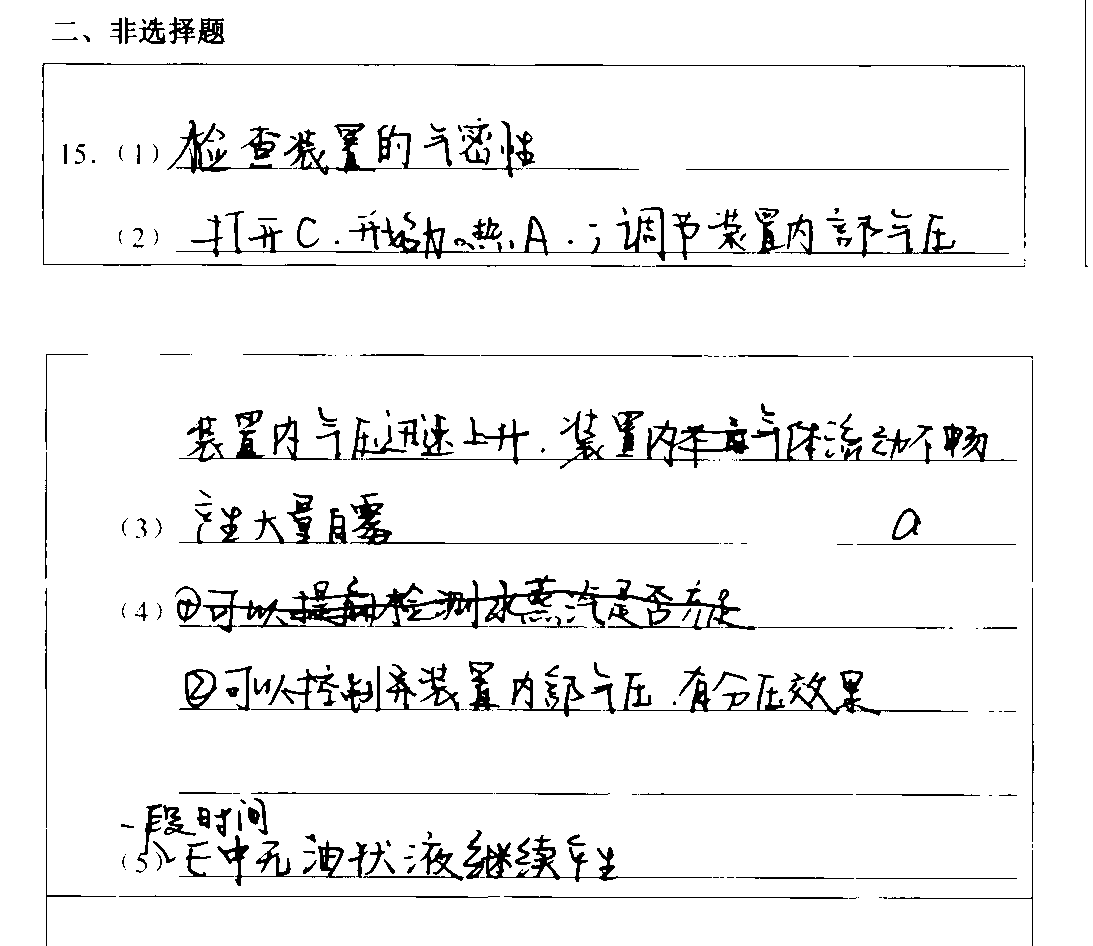 二、非选择题
15.（1）检查装置的气密性
（2）打开C.开始加热A.;调节装置内部气压
装置内气压迅速上升.装置内气体流动不畅
（3）产生大量白雾 a
（4）①可以提前检测水蒸汽是否充足
②可以控制装置内部气压.有分压效果
一段时间
（5）E中无油状液继续产生